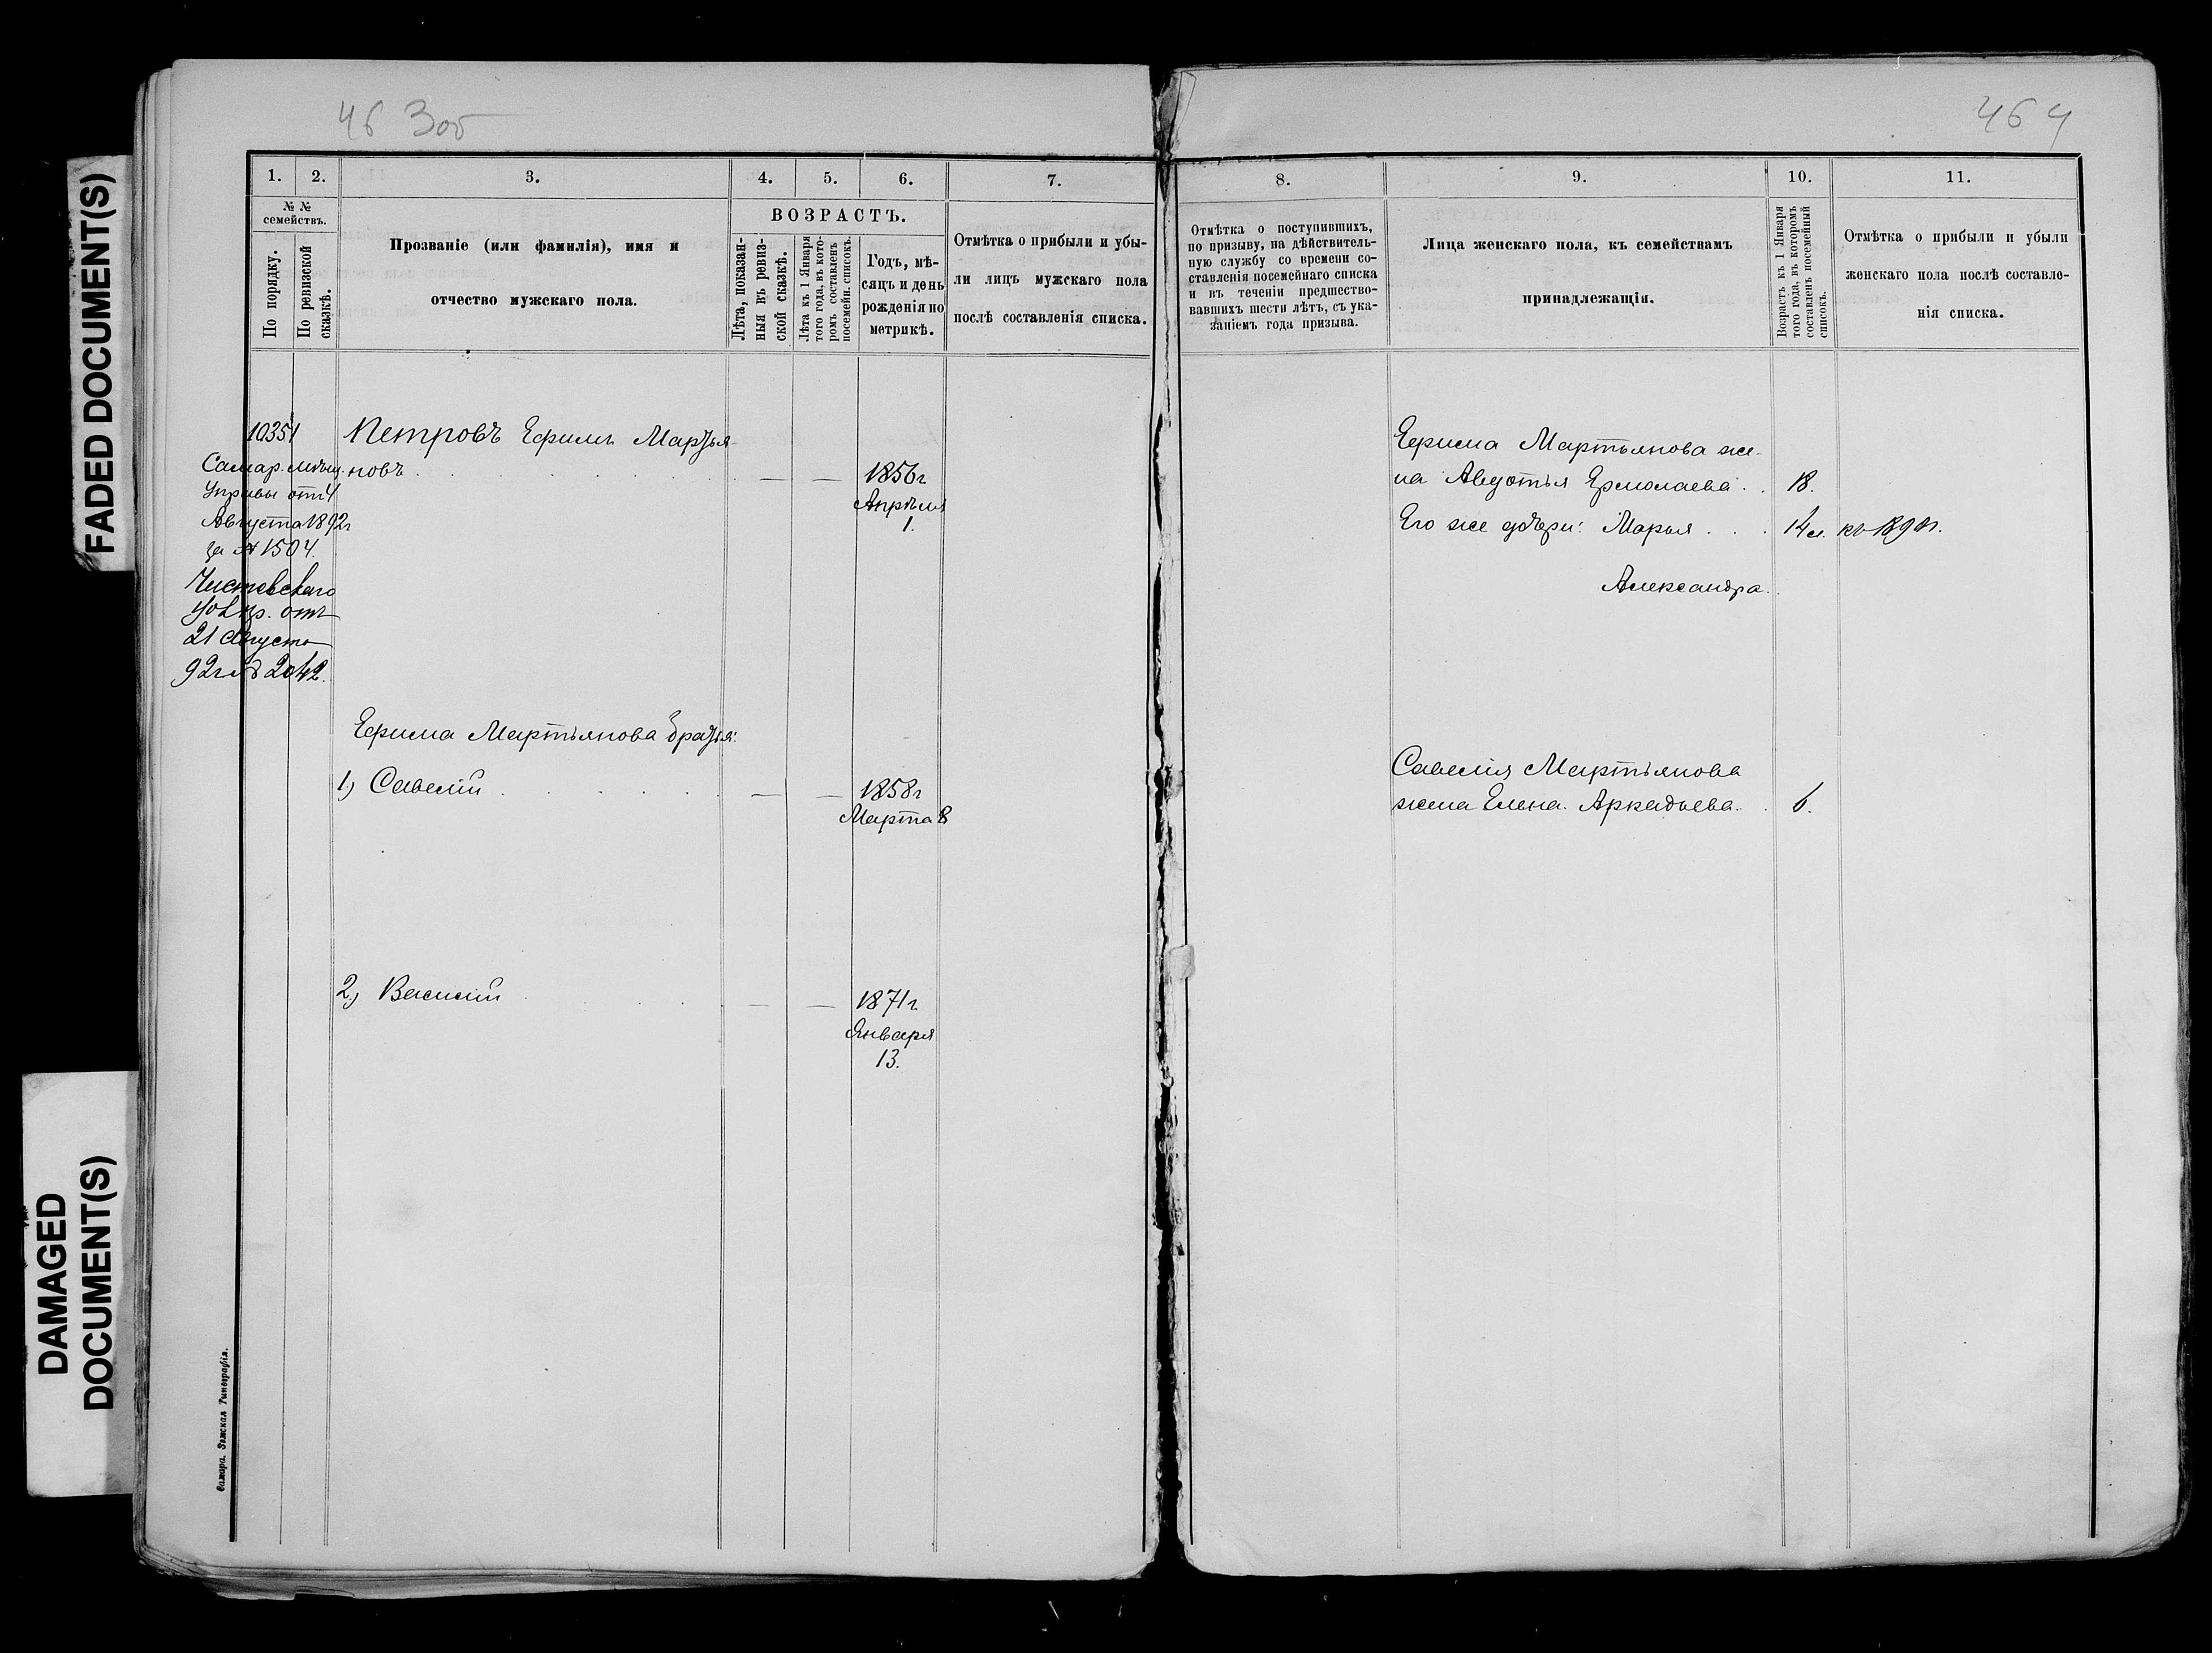 FADED DOCUMENT(S)
DAMAGED
DOCUMENT(S)
46 3об
1. 2. 3. 4. 5. 6. 7.
№ №
семействъ.
По порядку.
По ревизской
сказкѣ.
Прозваніе (или фамилія), имя и
отчество мужскаго пола.
ВОЗРАСТЪ.
Лѣта, показан-
ныя въ ревиз-
ской сказкѣ.
Лѣта къ 1 Января
того года, въ кото-
ромъ составленъ
посемейн. списокъ.
Годъ, мѣ-
сяцъ и день
рожденія по
метрикѣ.
Отмѣтка о прибыли и убы-
ли лицъ мужскаго пола
послѣ составленія списка.
10351
Самар. мѣщ.
Управы отъ 4
Августа 1892г
за № 1504.
отъ
21 Августа
92г № 2042.
Петровъ Ефимъ Мартья-
новъ . — — 1856г
Апрѣля
1.
Ефима Мартьянова братья:
1) Савелій . — — 1858г
Марта 8
2) Василій . — — 1871г.
Января
13.
Самара. Земская Типографія.
464
8. 9. 10. 11.
Отмѣтка о поступившихъ,
по призыву, на дѣйствитель-
ную службу со времени со-
ставленія посемейнаго списка
и въ теченіи предшество-
вавшихъ шести лѣтъ, съ ука-
заніемъ года призыва.
Лица женскаго пола, къ семействамъ
принадлежащія.
Возрастъ къ 1 Января
того года, въ которомъ
составленъ посемейный
списокъ.
Отмѣтка о прибыли и убыли
женскаго пола послѣ составле-
нія списка.
Ефима Мартьянова же-
на Авдотья Ермолаева . . 18.
Его же дочери: Марья . . .
Александра.
Савелія Мартьянова
жена Елена Аркадьева . . 6.